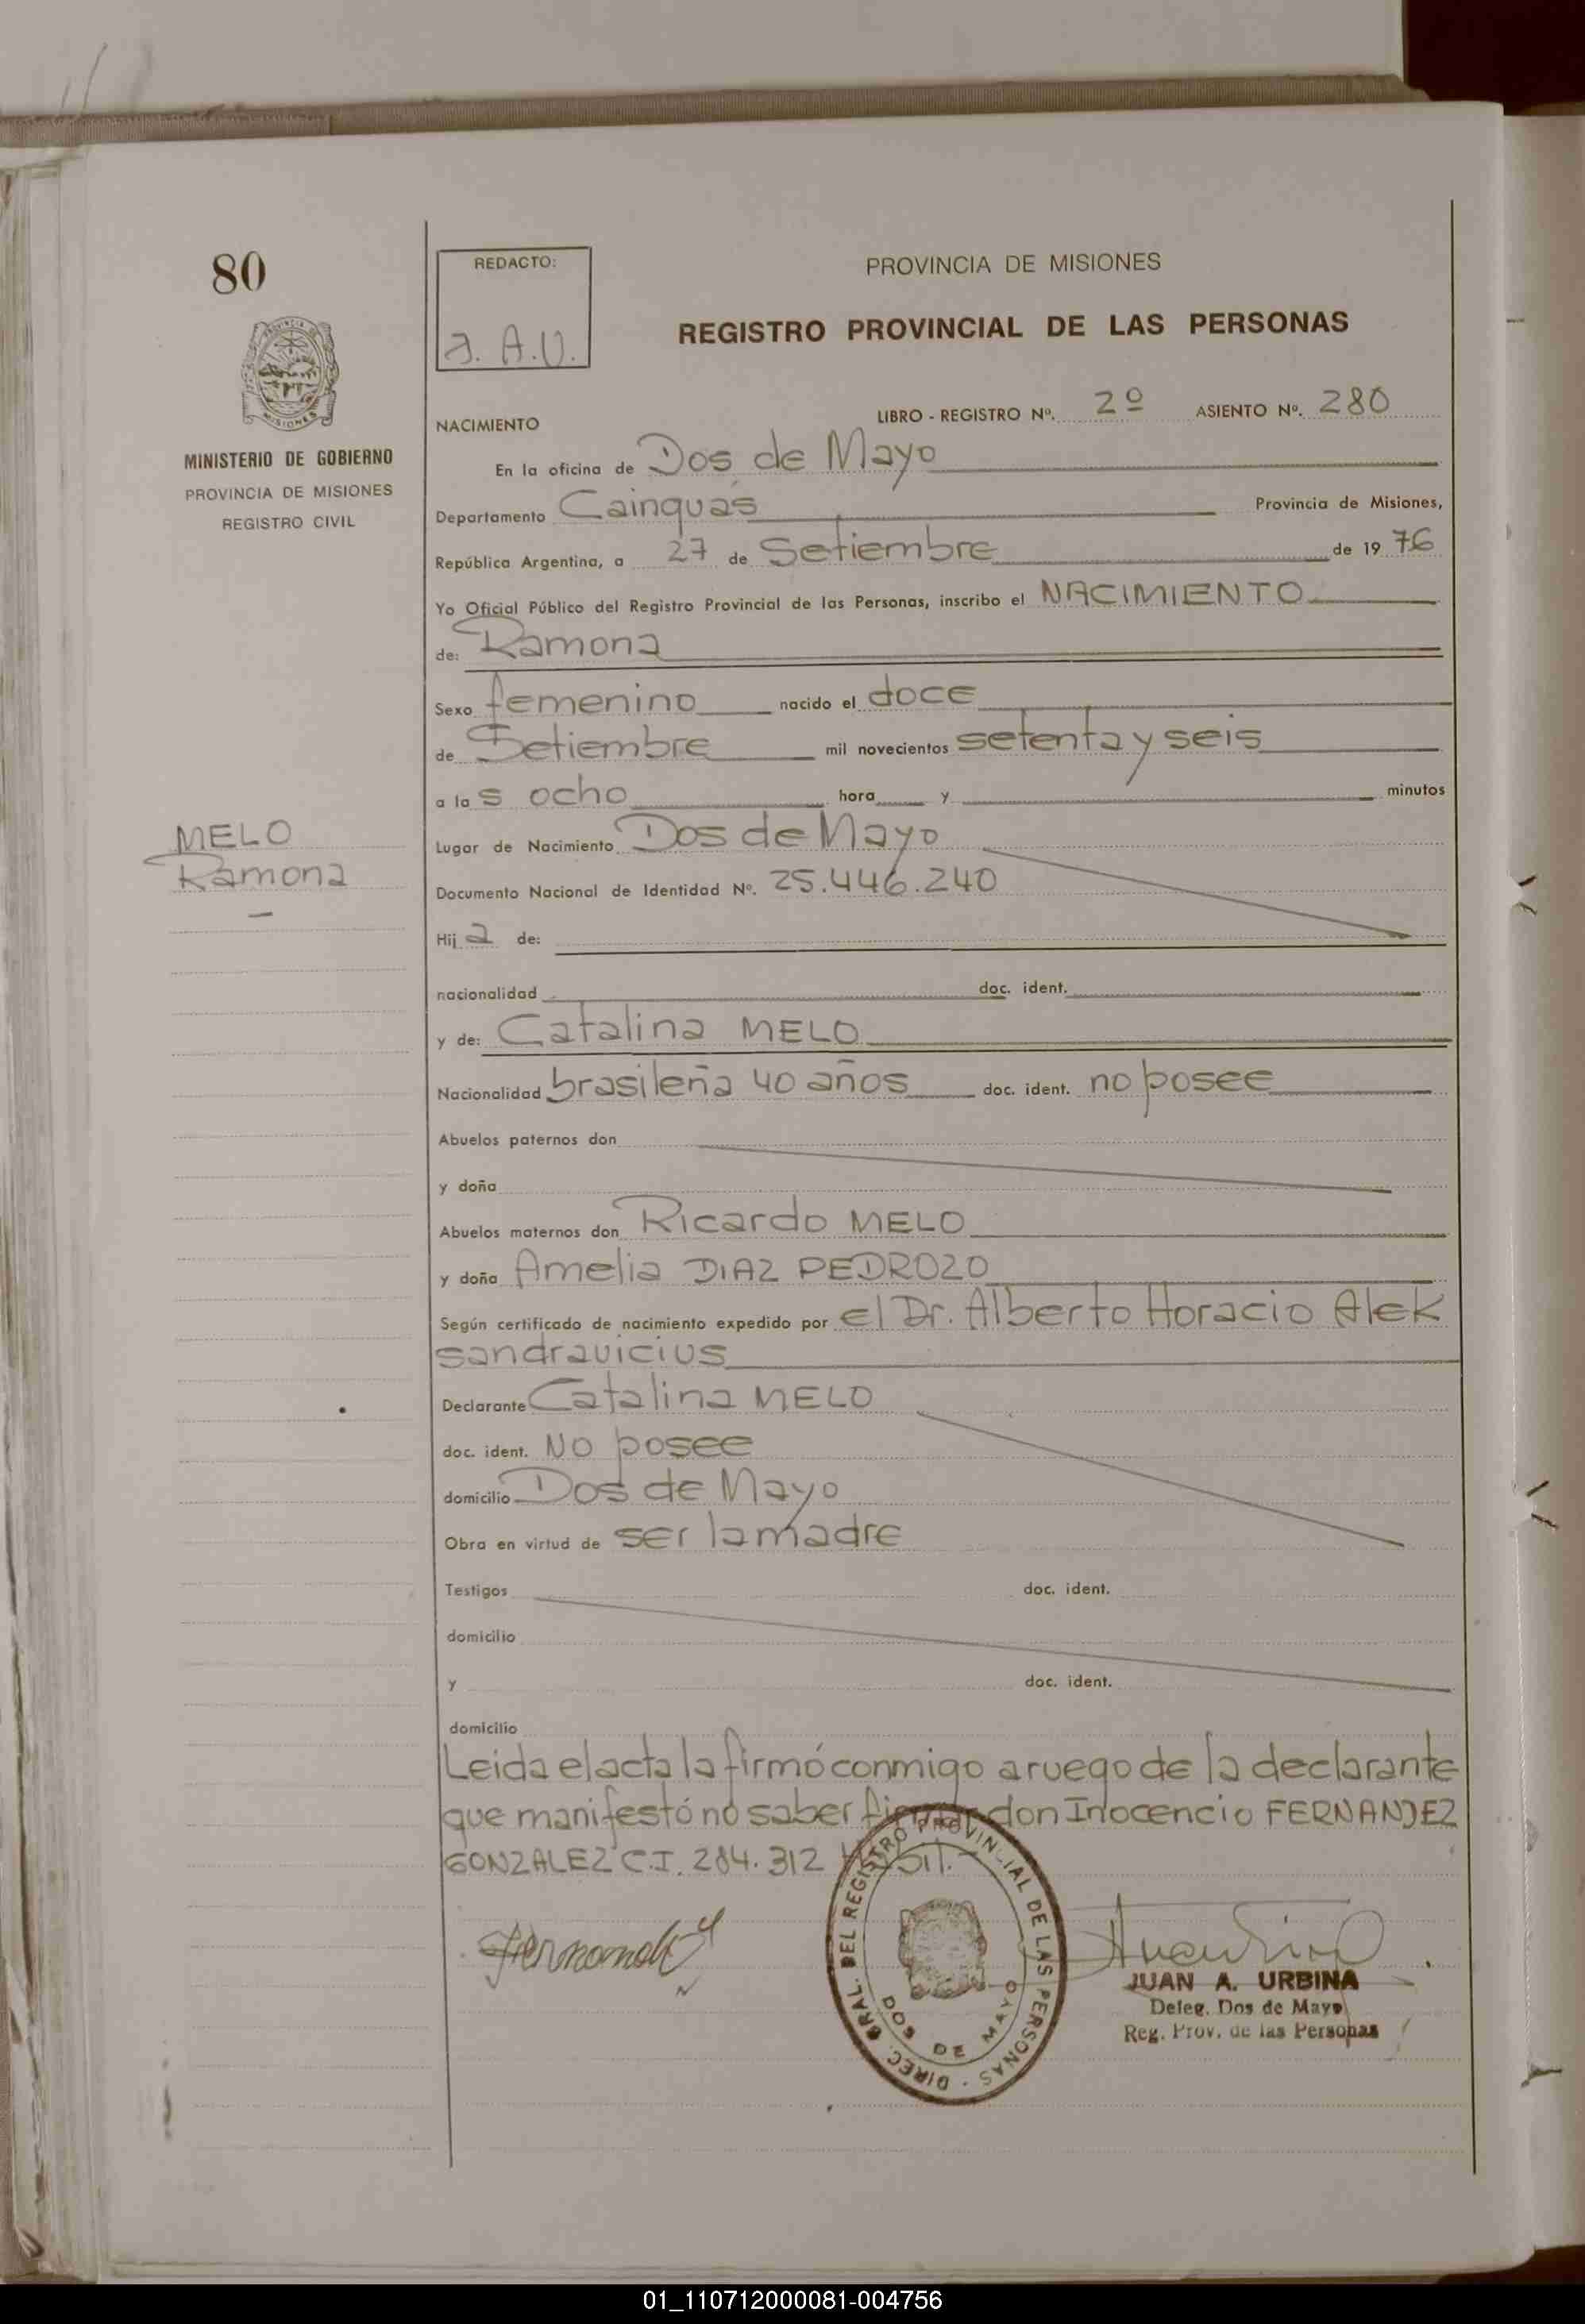 80
REDACTO:
J. A. U.
PROVINCIA DE MISIONES
REGISTRO PROVINCIAL DE LAS PERSONAS
MINISTERIO DE GOBIERNO
PROVINCIA DE MISIONES
REGISTRO CIVIL
NACIMIENTO
LIBRO - REGISTRO Nº. 2º ASIENTO Nº. 280
En la oficina de Dos de Mayo
Departamento Cainguás Provincia de Misiones,
República Argentina, a 27 de Setiembre de 19 76
Yo Oficial Público del Registro Provincial de las Personas, inscribo el NACIMIENTO
de: Ramona
Sexo femenino nacido el doce
de Setiembre mil novecientos setenta y seis
a la s ocho hora y minutos
MELO
Ramona
Lugar de Nacimiento Dos de Mayo
Documento Nacional de Identidad Nº. 25.446.240
Hij a de:
nacionalidad doc. ident.
y de: Catalina MELO
Nacionalidad brasileña 40 años doc. ident. no posee
Abuelos paternos don
y doña
Abuelos maternos don Ricardo MELO
y doña Amelia DIAZ PEDROZO
Según certificado de nacimiento expedido por el Dr. Alberto Horacio Alek
sandravicius
Declarante Catalina MELO
doc. ident. No posee
domicilio Dos de Mayo
Obra en virtud de ser la madre
Testigos doc. ident.
domicilio
y doc. ident.
domicilio
Leida el acta la firmó conmigo a ruego de la declarante
que manifestó no saber firmar don Inocencio FERNANDEZ
GONZALEZ C.I. 284.312
Fernandez
DIREC. GRAL. DEL REGISTRO PROVINCIAL DE LAS PERSONAS -
DOS DE MAYO
JUAN A. URBINA
Deleg. Dos de Mayo
Reg. Prov. de las Personas
01_110712000081-004756